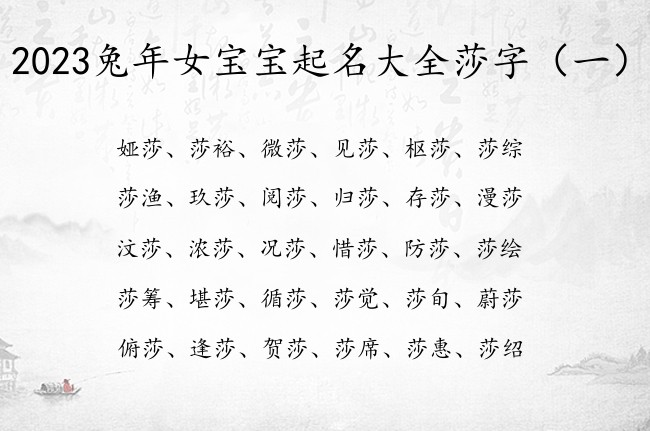 2023兔年女宝宝起名大全莎字（一）
娅莎、莎裕、微莎、见莎、枢莎、莎综
莎渔、玖莎、阅莎、归莎、存莎、漫莎
汶莎、浓莎、况莎、惜莎、防莎、莎绘
莎筹、堪莎、循莎、莎觉、莎旬、蔚莎
俯莎、逢莎、贺莎、莎席、莎惠、莎绍